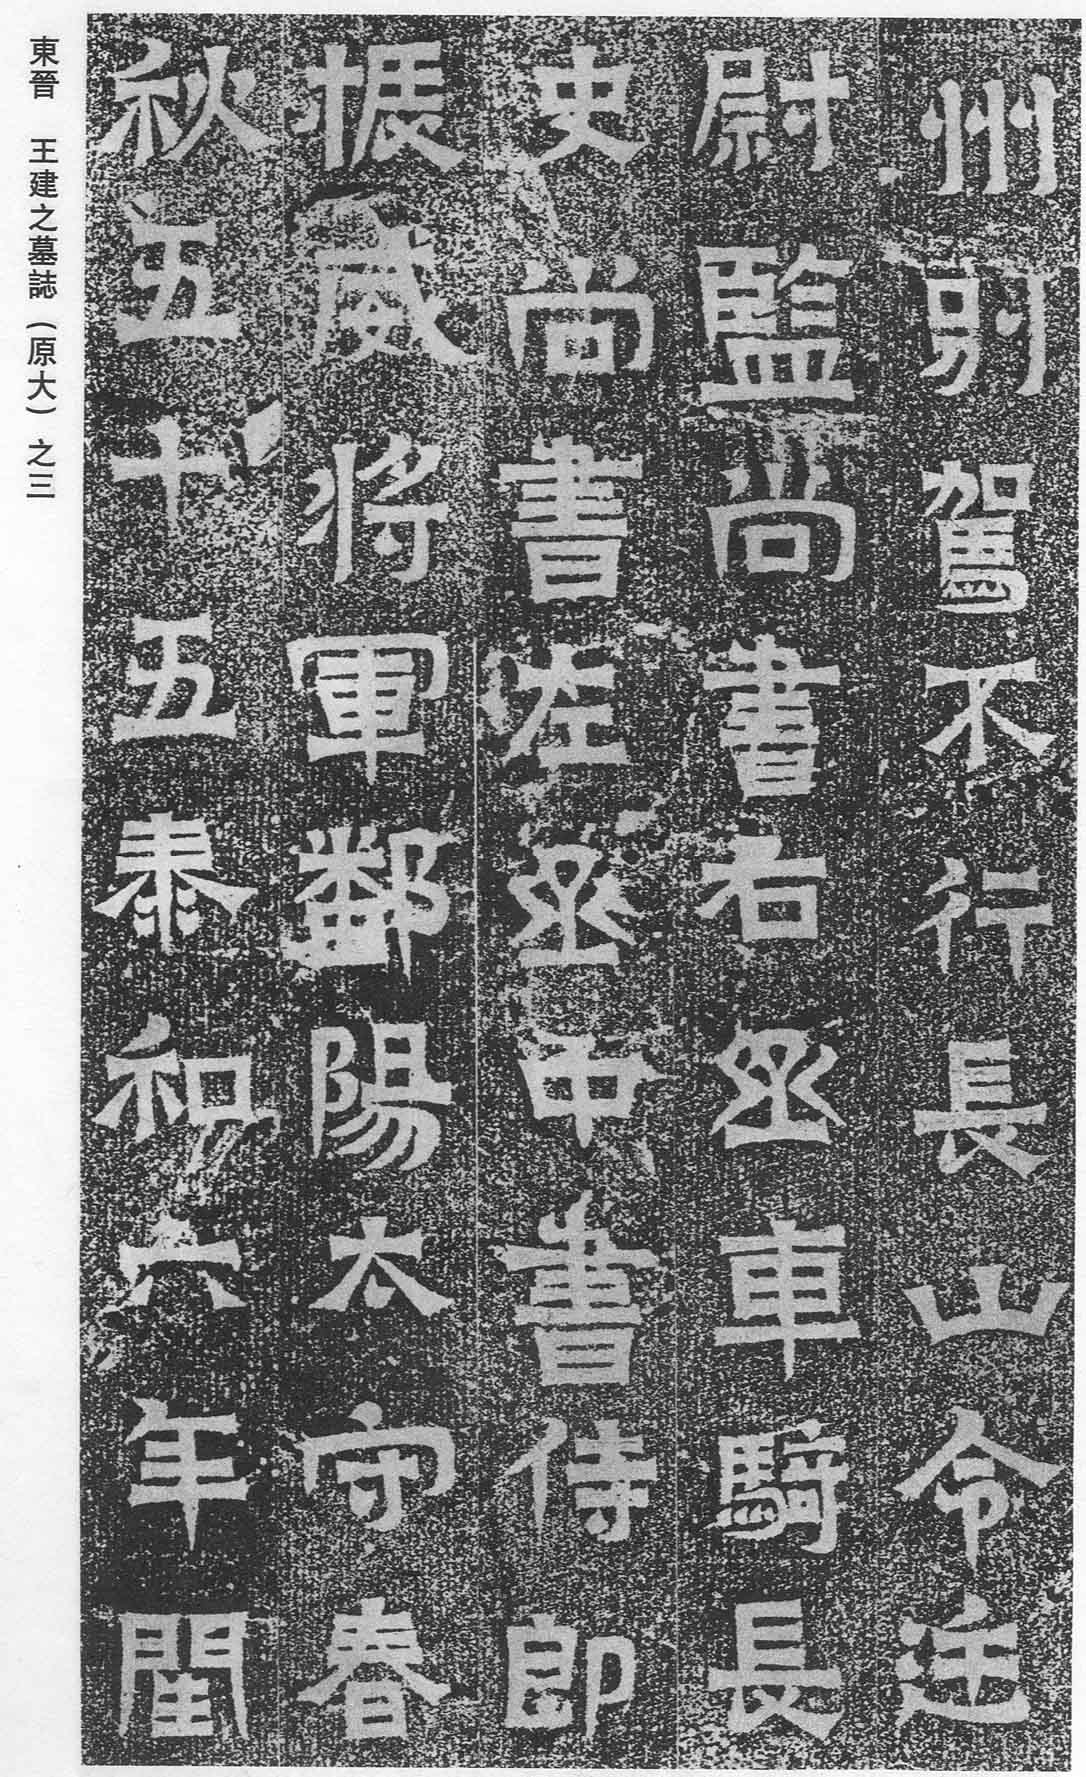 州別駕不行長山令廷
尉監尚書右丞車騎長
史尚書左丞中書侍郎
振威將軍鄱陽太守春
秋五十五泰和六年閏
東晉　王建之墓誌（原大）之三